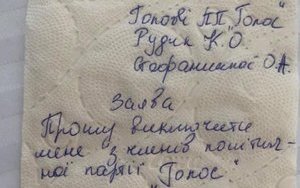 Голові ПП "Голос"
Рудик К.О.
Стефанишиної О.А.
Заява
Прошу виключити
мене з членів політич-
ної партії
"Голос".